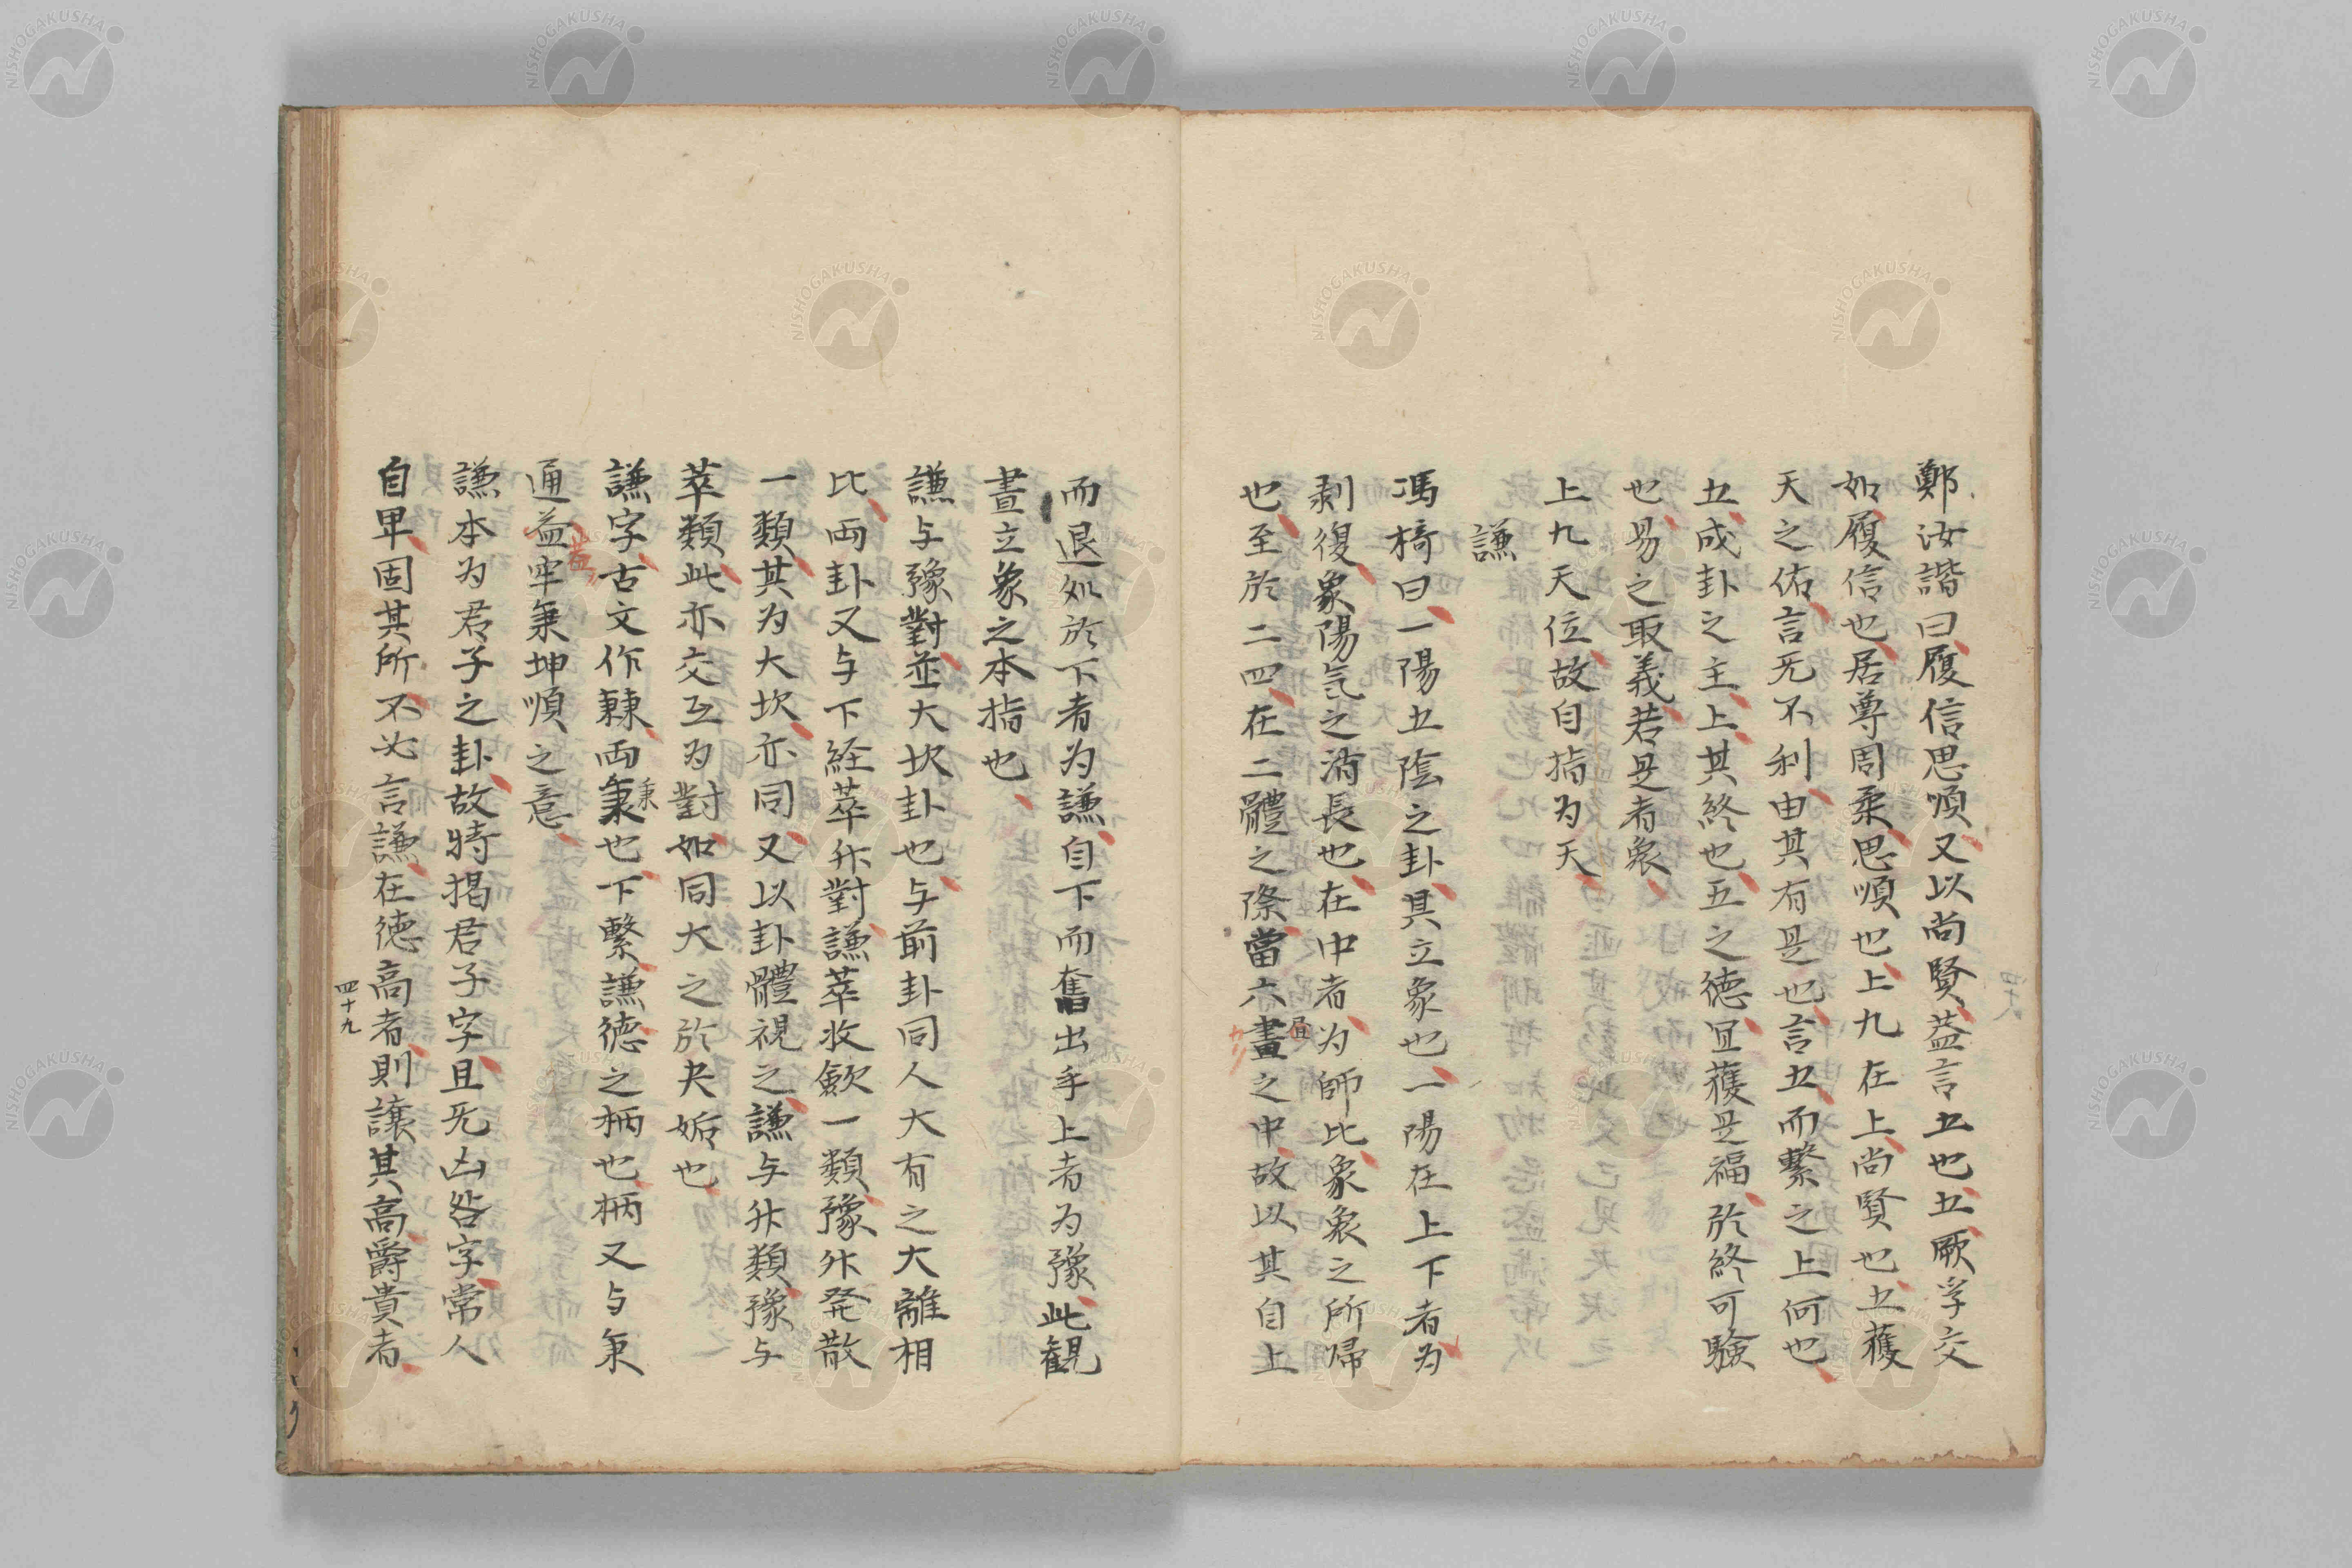 鄭汝諧曰履信思順又以尚賢盖言五也五厥孚交
如履信也居尊周柔思順也上九在上尚賢也五獲
天之佑言无不利由其有是也言五而繫之上何也
五成卦之主上其終也五之德宜獲是福於終可験
也易之取義若是者衆
上九天位故自指为天
謙
馮椅曰一陽五陰之卦具立象也一陽在上下者为
剥復象陽氣之消長也在中者为師比象衆之所帰
也至於二四在二體之際當六畫之中故以其自上
而退処於下者为謙自下而奮出乎上者为豫此観
畫立象之本指也
謙与豫對並大坎卦也与前卦同人大有之大離相
比両卦又与下経萃升對謙萃收斂一類豫升発散
一類其为大坎亦同又以卦體視之謙与升類豫与
萃類此亦交互为對如同大之於夬姤也
謙字古文作𥡝両秉也下繫謙德之柄也柄又与秉
通益牢秉坤順之意
謙本为君子之卦故特掲君子字且无凶咎字常人
自卑固其所不必言謙在徳高者則讓其高爵貴者
四十九
NISHOGAKUSHA